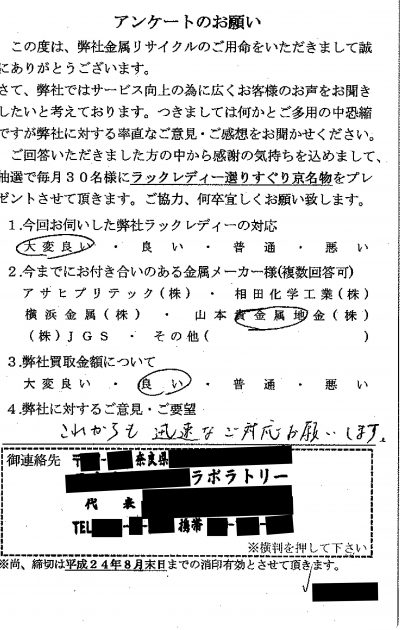 アンケートのお願い
この度は、弊社金属リサイクルのご用命をいただきまして誠
にありがとうございます。
さて、弊社ではサービス向上の為に広くお客様のお声をお聞き
したいと考えております。つきましては何かとご多用の中恐縮
ですが弊社に対する率直なご意見・ご感想をお聞かせください。
ご回答いただきました方の中から感謝の気持ちを込めまして、
抽選で毎月30名様にラックレディー選りすぐり京名物をプレ
ゼントさせて頂きます。ご協力、何卒宜しくお願い致します。
1.今回お伺いした弊社ラックレディーの対応
大変良い ・ 良い ・ 普通 ・ 悪い
2.今までにお付き合いのある金属メーカー様(複数回答可)
アサヒプリテック(株) ・ 相田化学工業(株)
横浜金属(株) ・ 山本貴金属地金(株)
(株)JGS ・ その他( )
3.弊社買取金額について
大変良い ・ 良い ・ 普通 ・ 悪い
4.弊社に対するご意見・ご要望
これからも 迅速な ご対応お願いします。
御連絡先 〒 奈良県
ラボラトリー
代表
TEL 携帯
※横判を押して下さい
※尚、締切は平成24年8月末日までの消印有効とさせて頂きます。